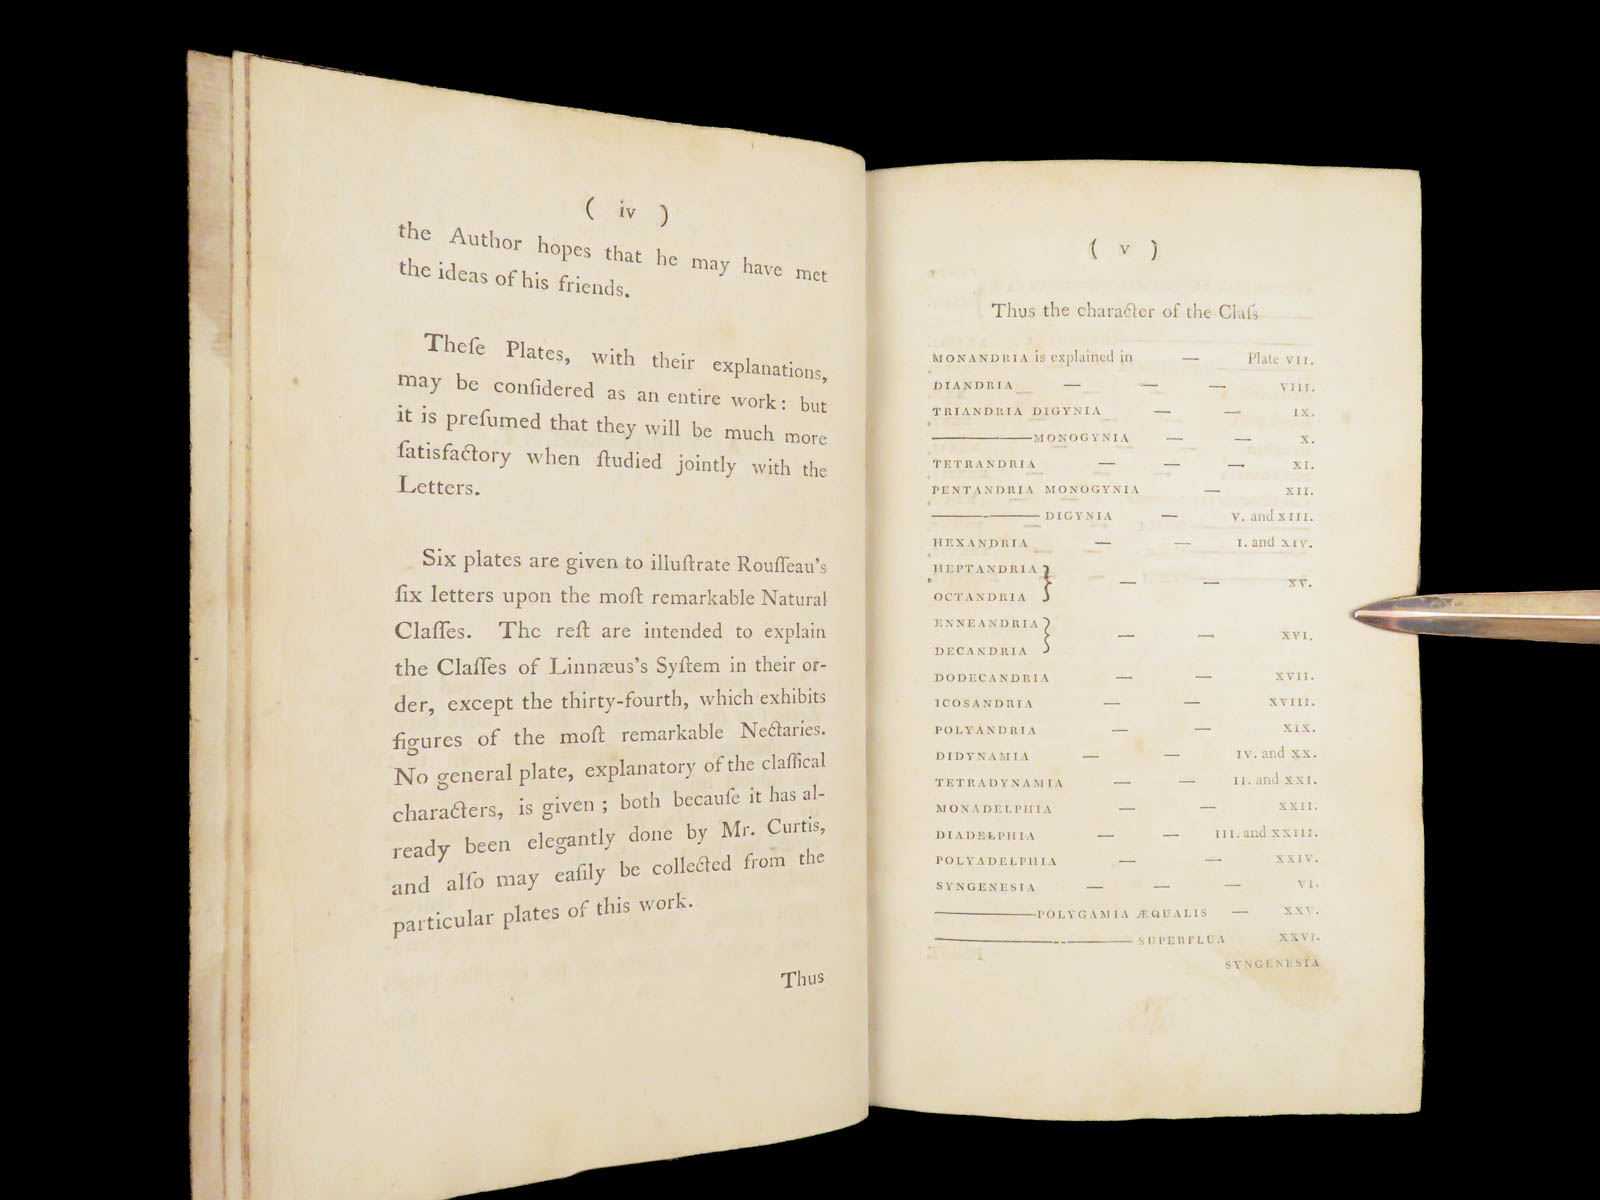 ( iv )
the Author hopes that he may have met
the ideas of his friends.
Theſe Plates, with their explanations,
may be conſidered as an entire work: but
it is preſumed that they will be much more
ſatisfactory when ſtudied jointly with the
Letters.
Six plates are given to illuſtrate Rouſſeau's
ſix letters upon the moſt remarkable Natural
Claſſes. The reſt are intended to explain
the Claſſes of Linnæus's Syſtem in their or-
der, except the thirty-fourth, which exhibits
figures of the moſt remarkable Nectaries.
No general plate, explanatory of the claſſical
characters, is given ; both becauſe it has al-
ready been elegantly done by Mr. Curtis,
and alſo may eaſily be collected from the
particular plates of this work.
Thus
( v )
Thus the character of the Claſs
MONANDRIA is explained in — Plate VII.
DIANDRIA — — — VIII.
TRIANDRIA DIGYNIA — — IX.
———— MONOGYNIA — — X.
TETRANDRIA — — — XI.
PENTANDRIA MONOGYNIA — XII.
———— DIGYNIA — V. and XIII.
HEXANDRIA — — I. and XIV.
HEPTANDRIA }
OCTANDRIA } — — XV.
ENNEANDRIA }
DECANDRIA } — — XVI.
DODECANDRIA — — XVII.
ICOSANDRIA — — XVIII.
POLYANDRIA — — XIX.
DIDYNAMIA — — IV. and XX.
TETRADYNAMIA — — II. and XXI.
MONADELPHIA — — XXII.
DIADELPHIA — — III. and XXIII.
POLYADELPHIA — — XXIV.
SYNGENESIA — — — VI.
———— POLYGAMIA ÆQUALIS — XXV.
———————— SUPERFLUA XXVI.
SYNGENESIA